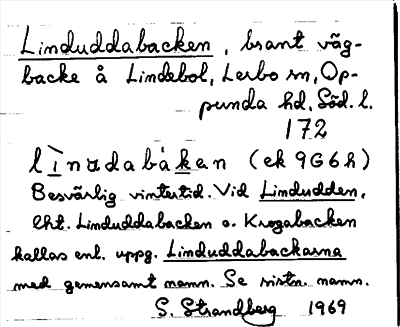 Linduddabacken, brant väg-
backe å Lindebol, Lerbo sn, Op-
punda hd, Söd. l.
172
lìnɑdabàkan (ek 9G6h)
Besvärlig vintertid. Vid Lindudden.
Eht. Linduddabacken o. Krogabacken
kallas enl. uppg. Linduddabackarna
med gemensamt namn. Se sistn. namn.
S. Strandberg 1969